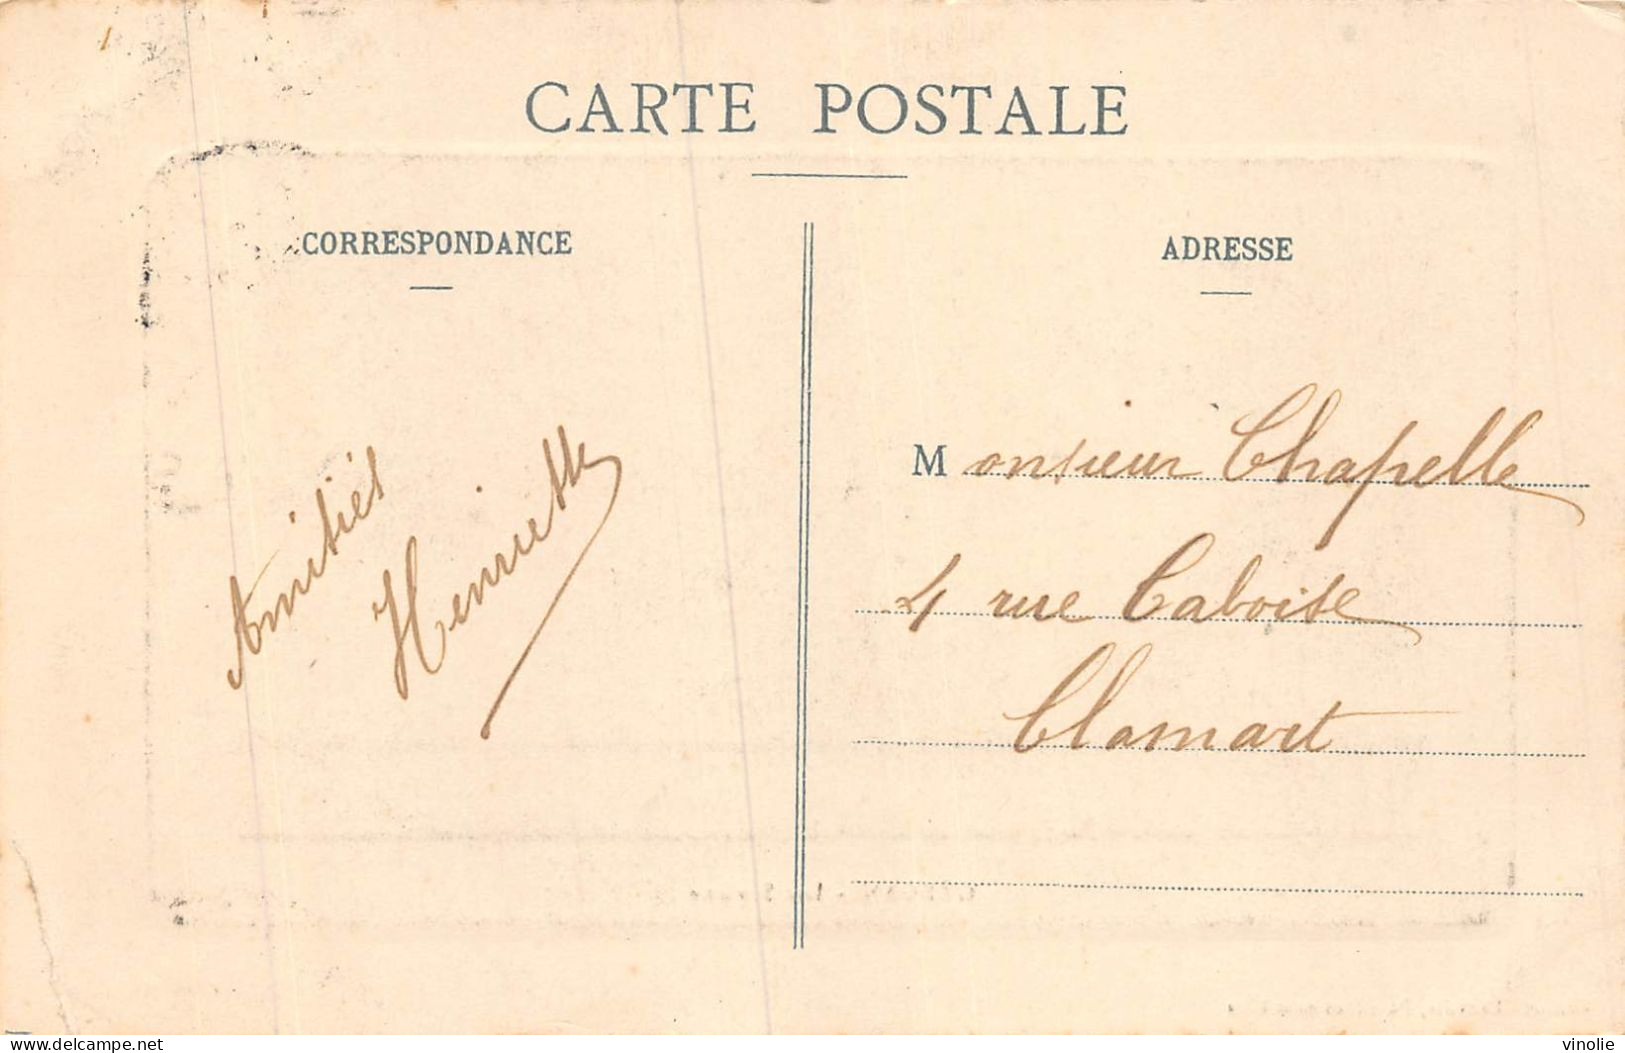 CARTE POSTALE
CORRESPONDANCE
Amitiés
Henriette
ADRESSE
Monsieur Chapelle
4 rue Taboise
Clamart
delcampe.net
vinolie